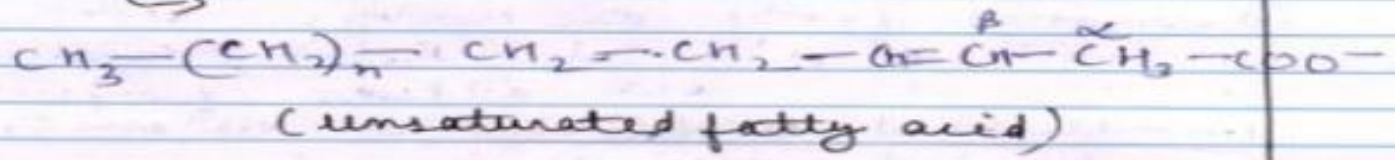 β α
CH₃—(CH₂)ₙ—CH₂—CH₂—CH=CH—CH₂—COO⁻
(unsaturated fatty acid)